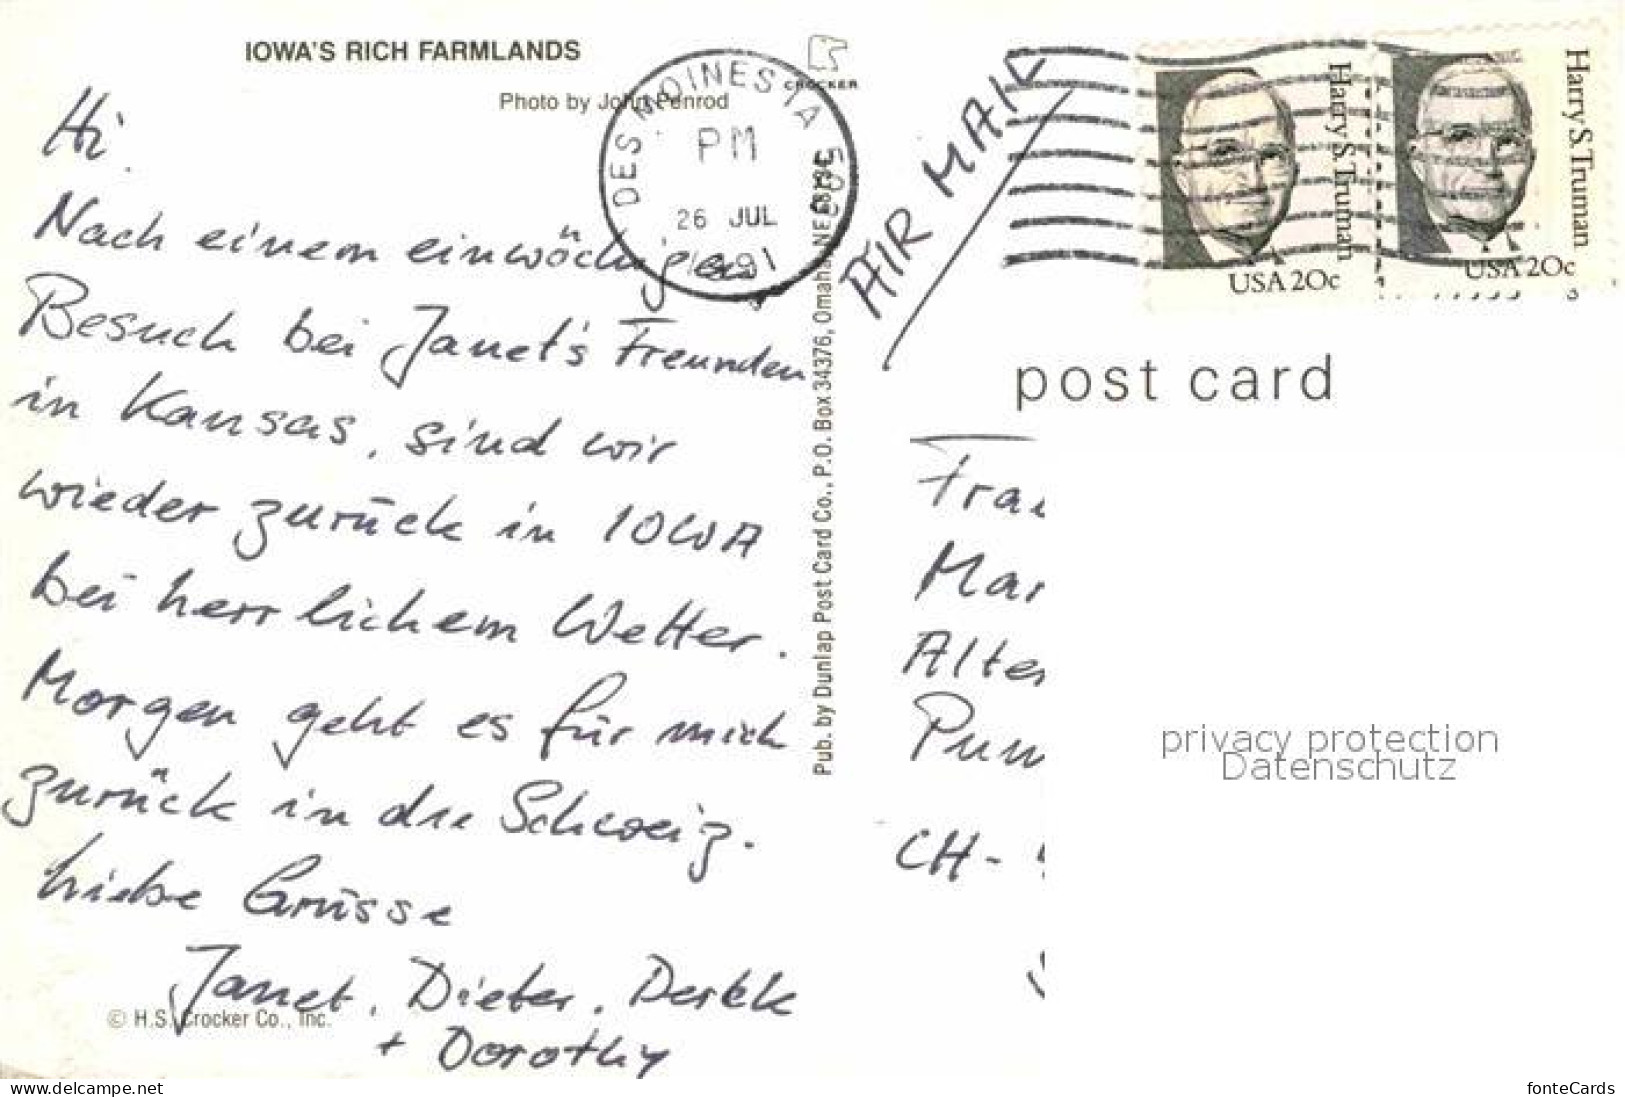 IOWA'S RICH FARMLANDS
Photo by John Penrod
Hi
Nach einem einwöchigen
Besuch bei Janet's Freunden
in Kansas, sind wir
wieder zurück in IOWA
bei herrlichem Wetter.
Morgen geht es für mich
zurück in die Schweiz.
Liebe Grüsse
Janet, Dieter,
+ Dorothy
© H.S. Crocker Co., Inc.
DES MOINES IA
PM
26 JUL
1991
CROCKER
Pub. by Dunlap Post Card Co., P.O. Box 34376, Omaha,
AIR MAIL
Harry S. Truman
USA 20c
Harry S. Truman
USA 20c
post card
Frau
Mar
Alte
CH-
privacy protection
Datenschutz
www.delcampe.net
fonteCards